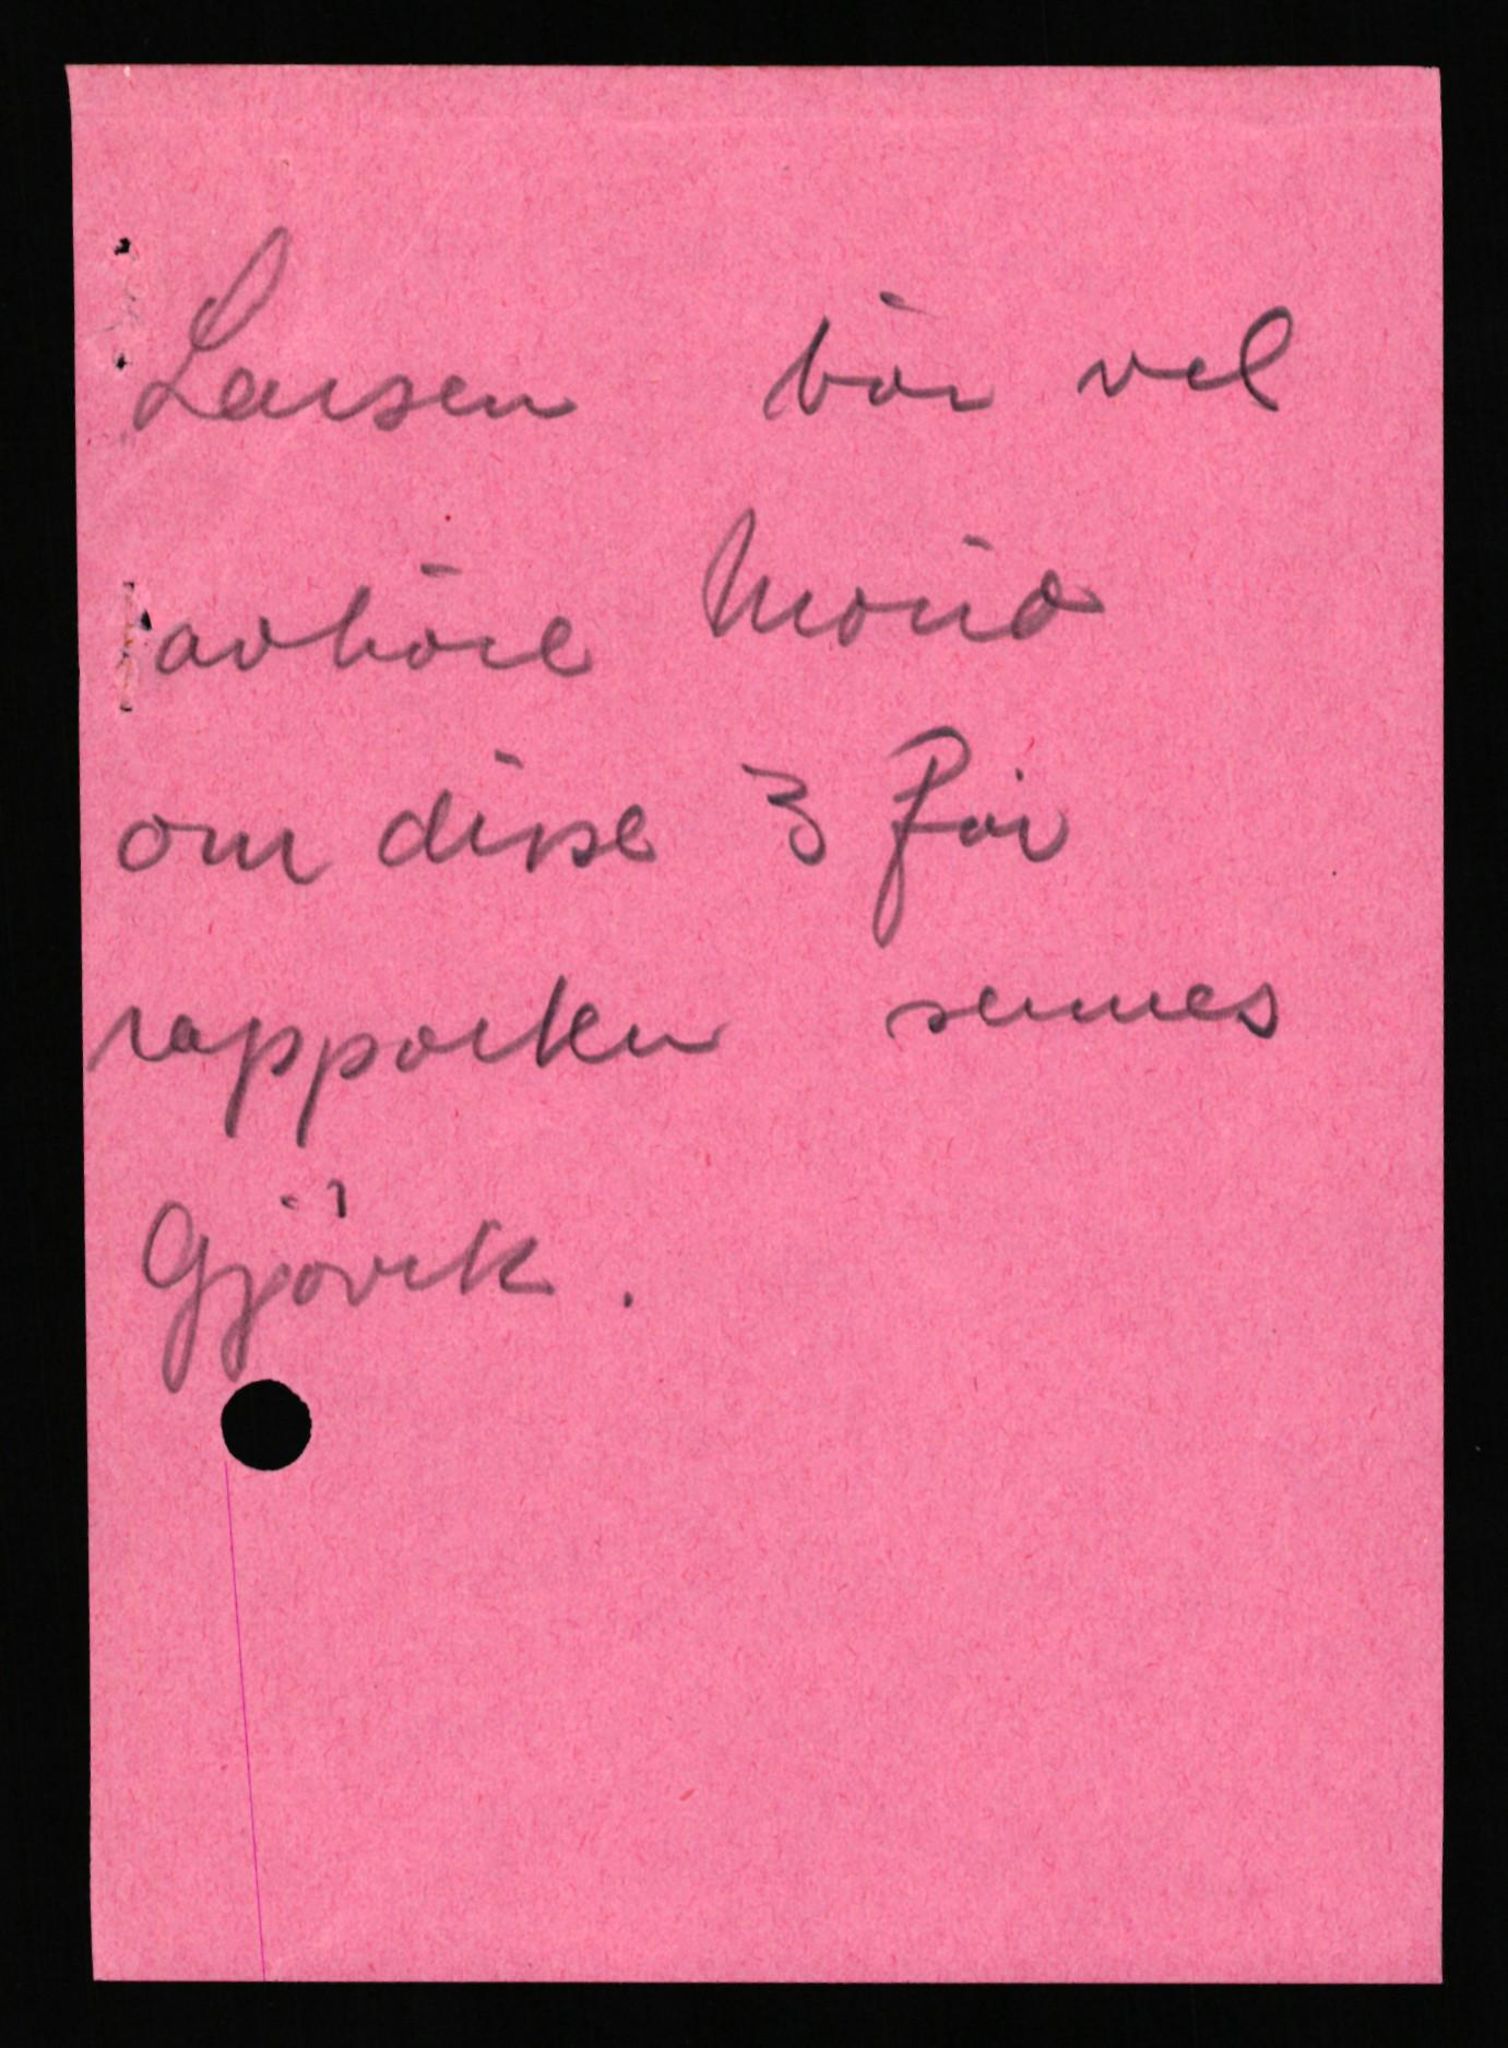 Larsen bör vel
avhöre
om disse 3 för
rapporten sennes
Gjövik.